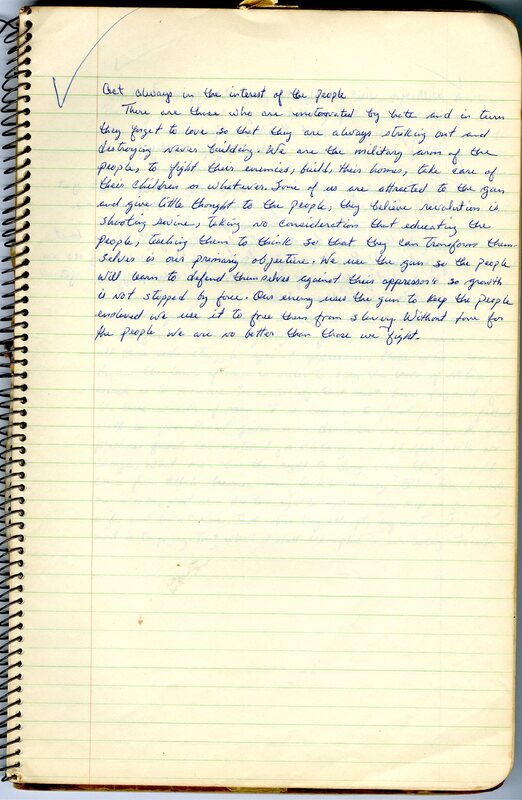 Act always in the interest of the people
There are those who are motovated by hate and in turn
they forget to love so that they are always striking out and
destroying never building. We are the military arm of the
people, to fight their enemies, build their homes, take care of
their children or whatever. Some of us are attracted to the gun
and give little thought to the people, they believe revolution is
shooting swine, taking no consideration that educating the
people, teaching them to think so that they can transform them-
selves is our primary objective. We use the gun so the people
will learn to defend themselves against their oppressors so growth
is not stopped by force. Our enemy uses the gun to keep the people
enslaved we use it to free them from slavery. Without love for
the people we are no better than those we fight.